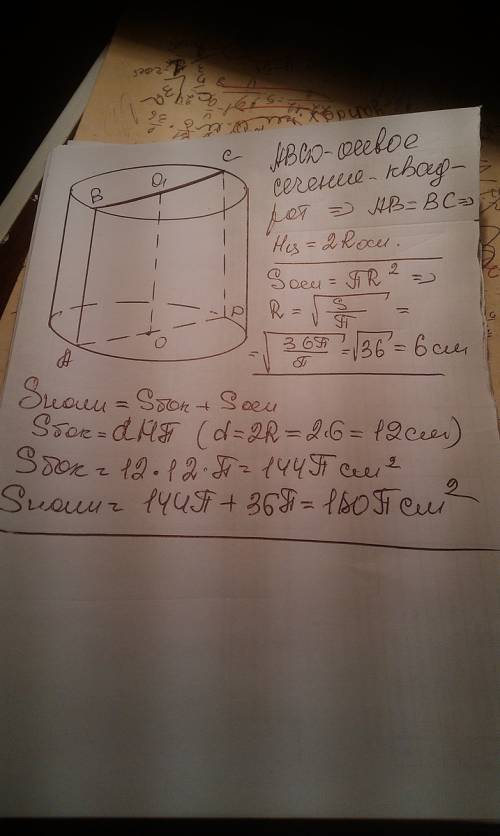 C
B
O₁
D
A
O
ABCD-осевое
сечение-квад-
рат ⇒ AB=BC⇒
Hц = 2Rосн.
Sосн = ПR² ⇒
R = √(S/П) =
= √(36П/П) = √36 = 6 см
Sполн = Sбок + Sосн
Sбок = dHП (d=2R=2·6=12см)
Sбок = 12·12·П = 144П см²
Sполн = 144П + 36П = 180П см²